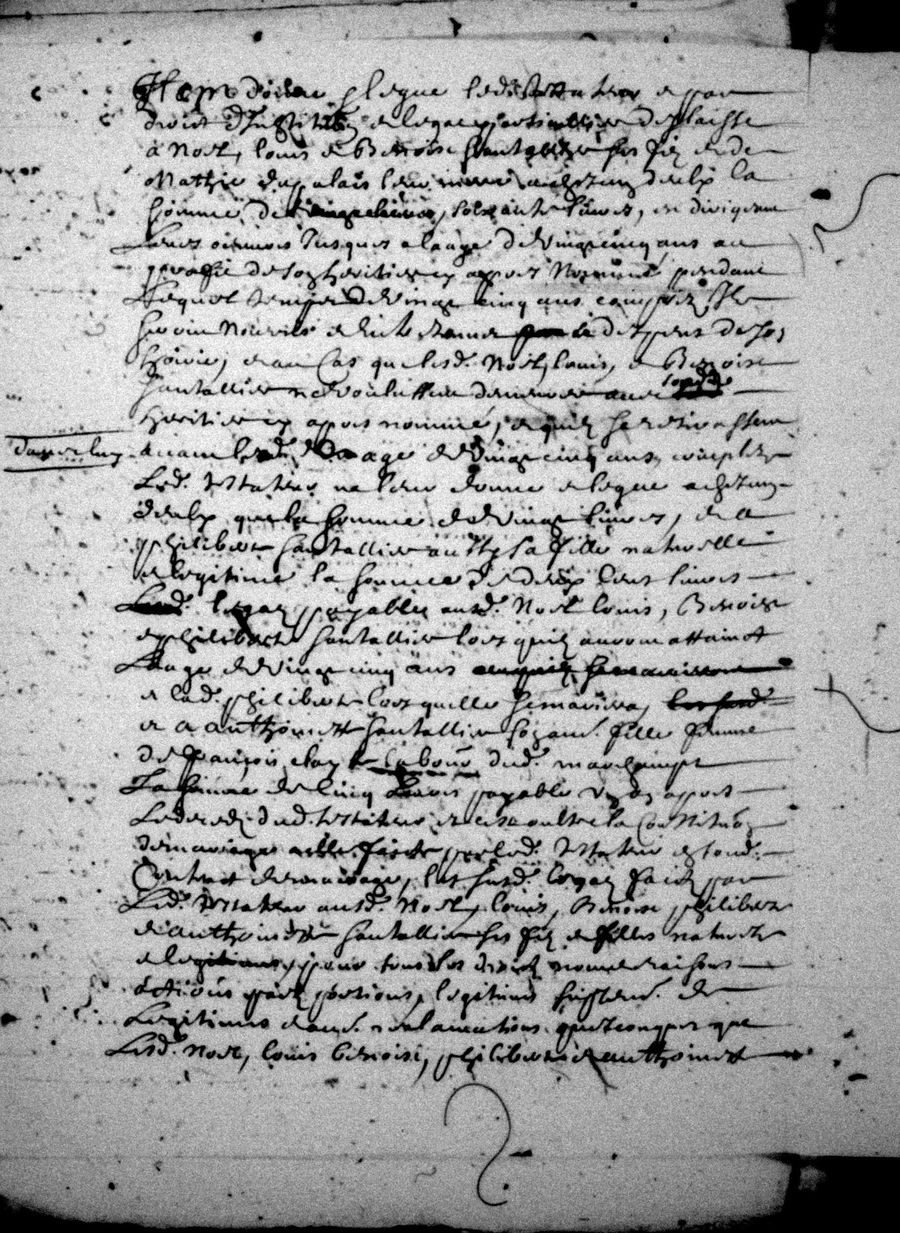 Item donne & legue ledit testateur & par
droict d'Institution & legat particullier delaisse
a Noel, Louis & Benoise Chantallier ses filz & de
Mathie du palais leur mere a chascung d'eulx la
somme de soixante livres, en divigeant
leurs octroiois Jusques a laage de vingt cinq ans au
proffic de son heritier cy appres Nommé pendant
Lequel temps de vingt cinq ans complez Ilz
seront nouriz & entretenus despens de son
hoirie, & au Cas que lesd. Noel, Louis, & Benoise
Chantallier ne voulussent demeurer avec sond.
heritier cy appres nommé, & quilz se retirassent
d'avec luy
avant led. aage de vingt cinq ans complez
Led. testateur ne leur donne & legue a chascung
d'eulx que la somme de vingt livres, & a
philiberte Chantallier aussy sa fille naturelle
& legitime la somme de deux Cent livres
legaz payables ausd. Noel Louis, Benoise
& philiberte Chantallier lors quilz auront attainct
L'aage de vingt cinq ans
& lad. philiberte lors quelle se mariera,
et a anthoinette Chantallier fille femme
de françois labour dud. marchampt
La somme de Cinq livres payable ung an appres
Le deces dud. testateur et ce oultre la Constitution
de mariage a elle faicte par led. testateur en son
Contract de mariage, les susd. legaz faictz par
Led. testateur ausd. Noel, Louis, Benoise philiberte
& anthoinette Chantallier ses filz & filles naturelz
& legitimes, pour tous les droictz noms raisons
actions partz portions, legitimes supplement de
Legitimes & autres reclamations quelconques que
Lesd. Noel, Louis Benoise, philiberte & anthoinette